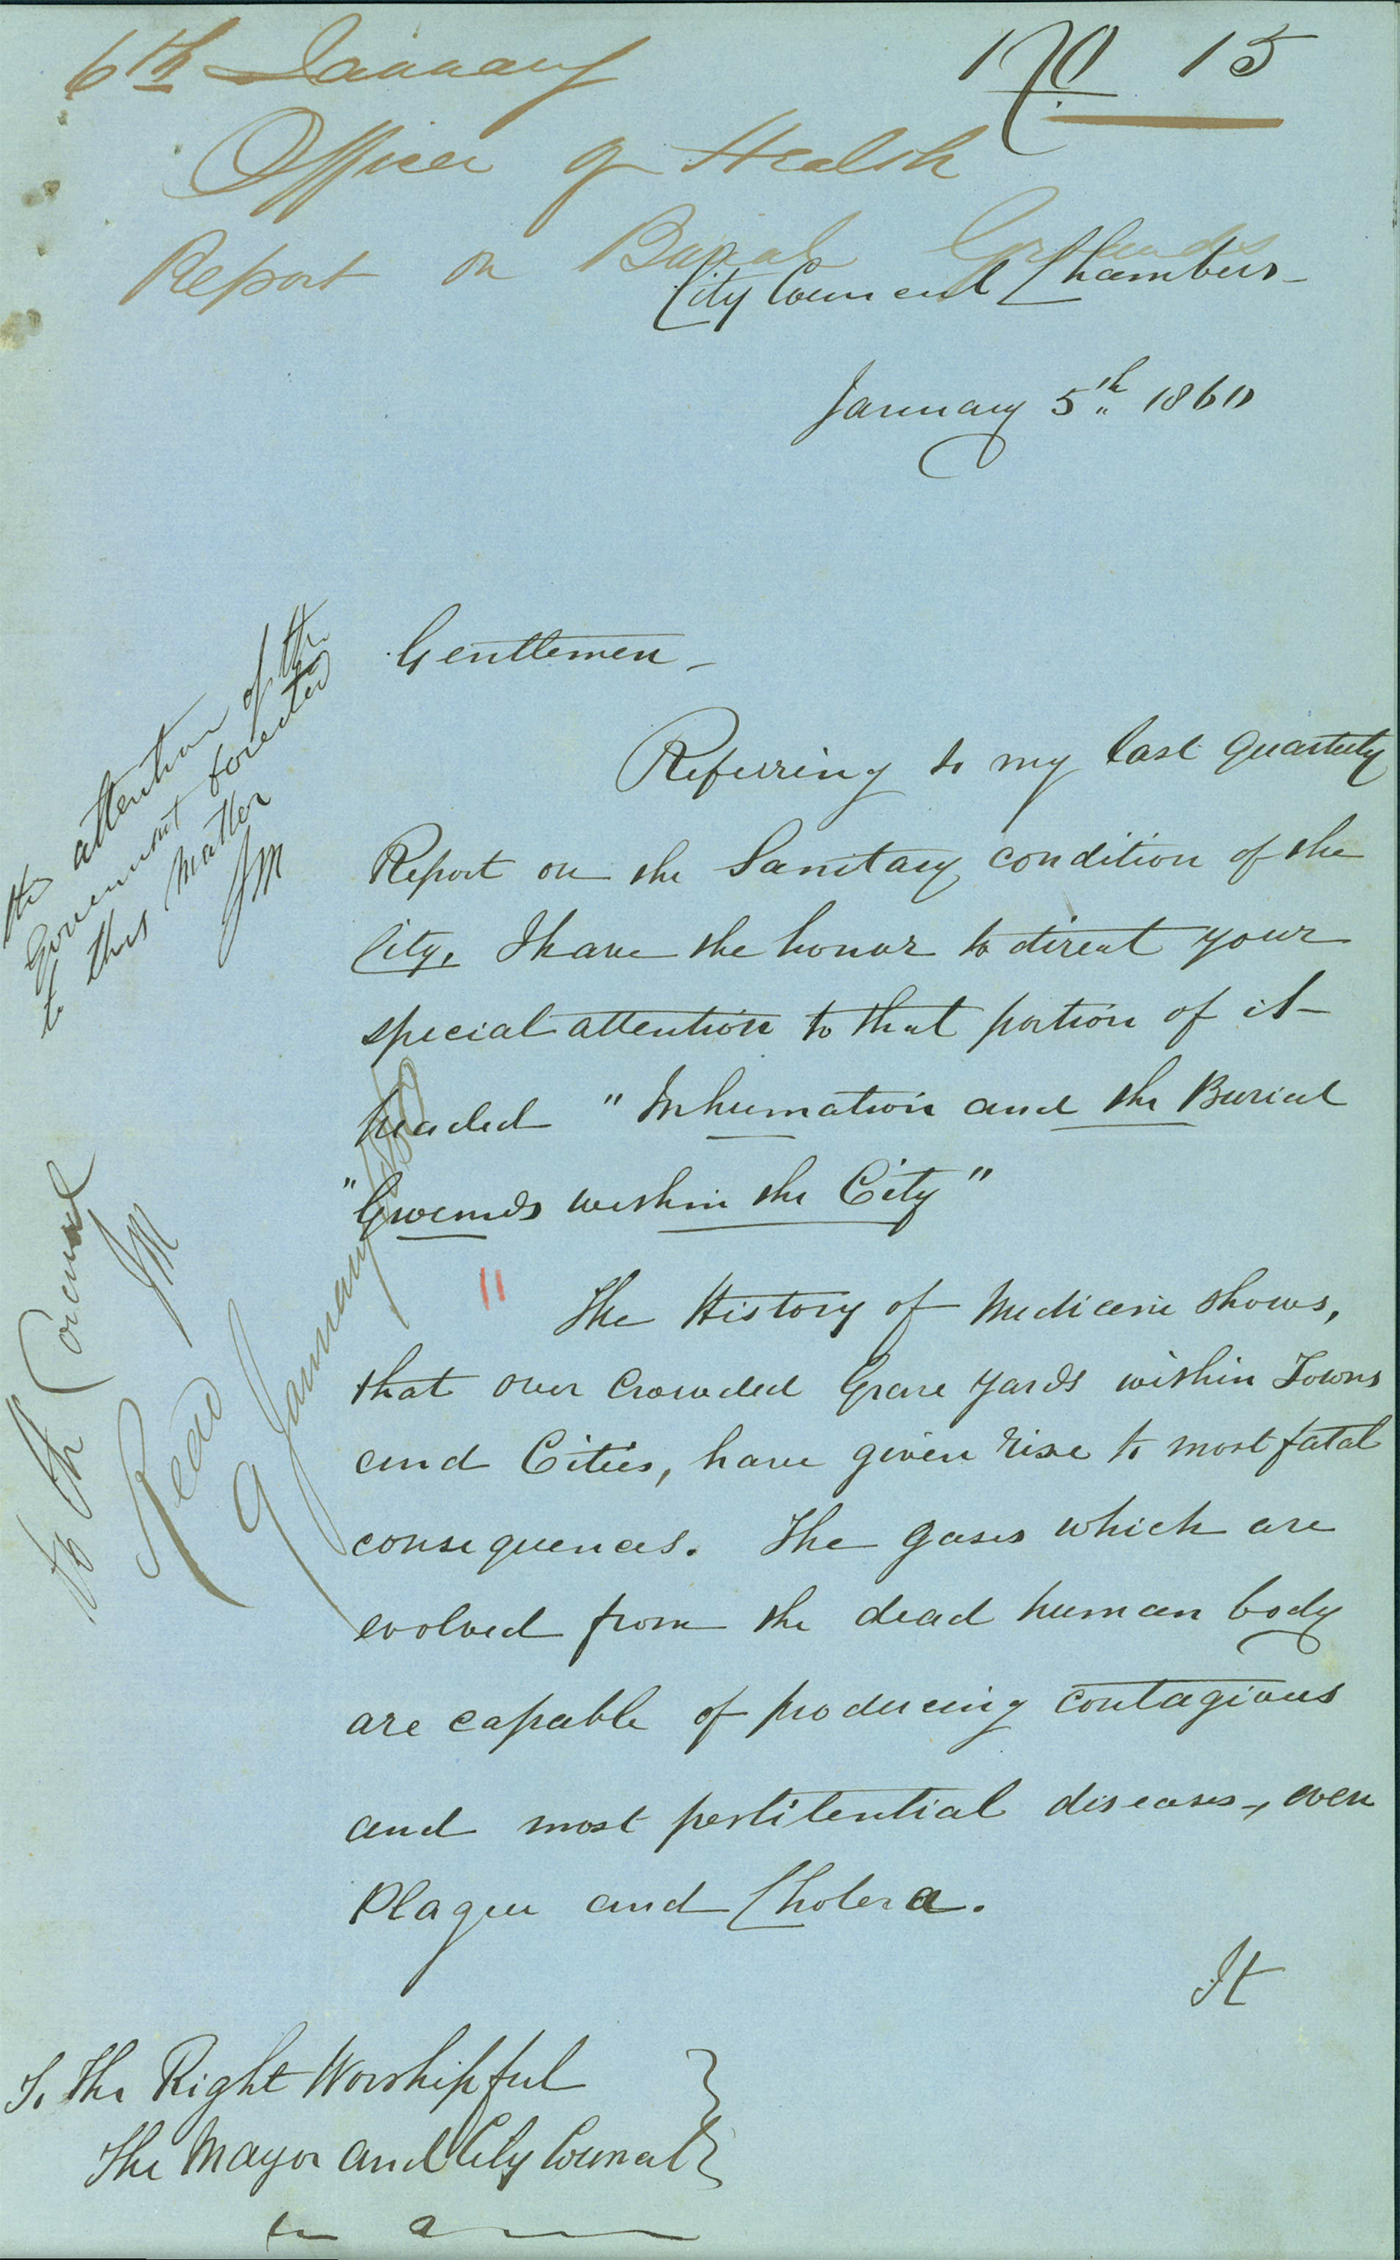 6th January
15
Officer of Health
Report on Burial Grounds
City Council Chambers
January 5th 1860
Gentlemen
Referring to my last quarterly
Report on the Sanitary condition of the
City, I have the honor to direct your
special attention to that portion of it
headed "Inhumation and the Burial
"Grounds within the City"
"
The History of Medicine shows,
that over crowded Grave yards within Towns
and Cities, have given rise to most fatal
consequences. The gases which are
evolved from the dead human body
are capable of producing contagious
and most pestilential diseases, even
Plague and Cholera.
It
To The Right Worshipful
The Mayor and City Council
the attention of the
Government directed
to this matter
JM
to the Council
JM
Read
9 January 1860